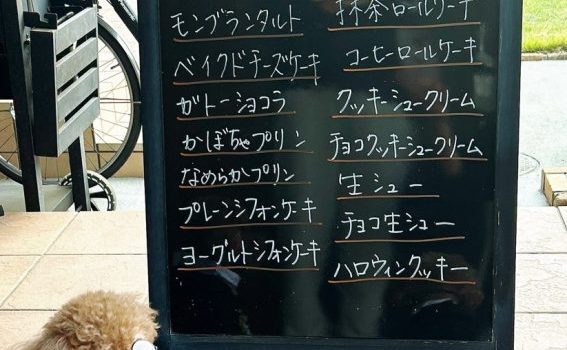 モンブランタルト
ベイクドチーズケーキ
ガトーショコラ
かぼちゃプリン
なめらかプリン
プレーンシフォンケーキ
ヨーグルトシフォンケーキ
抹茶ロールケーキ
コーヒーロールケーキ
クッキーシュークリーム
チョコクッキーシュークリーム
生シュー
チョコ生シュー
ハロウィンクッキー